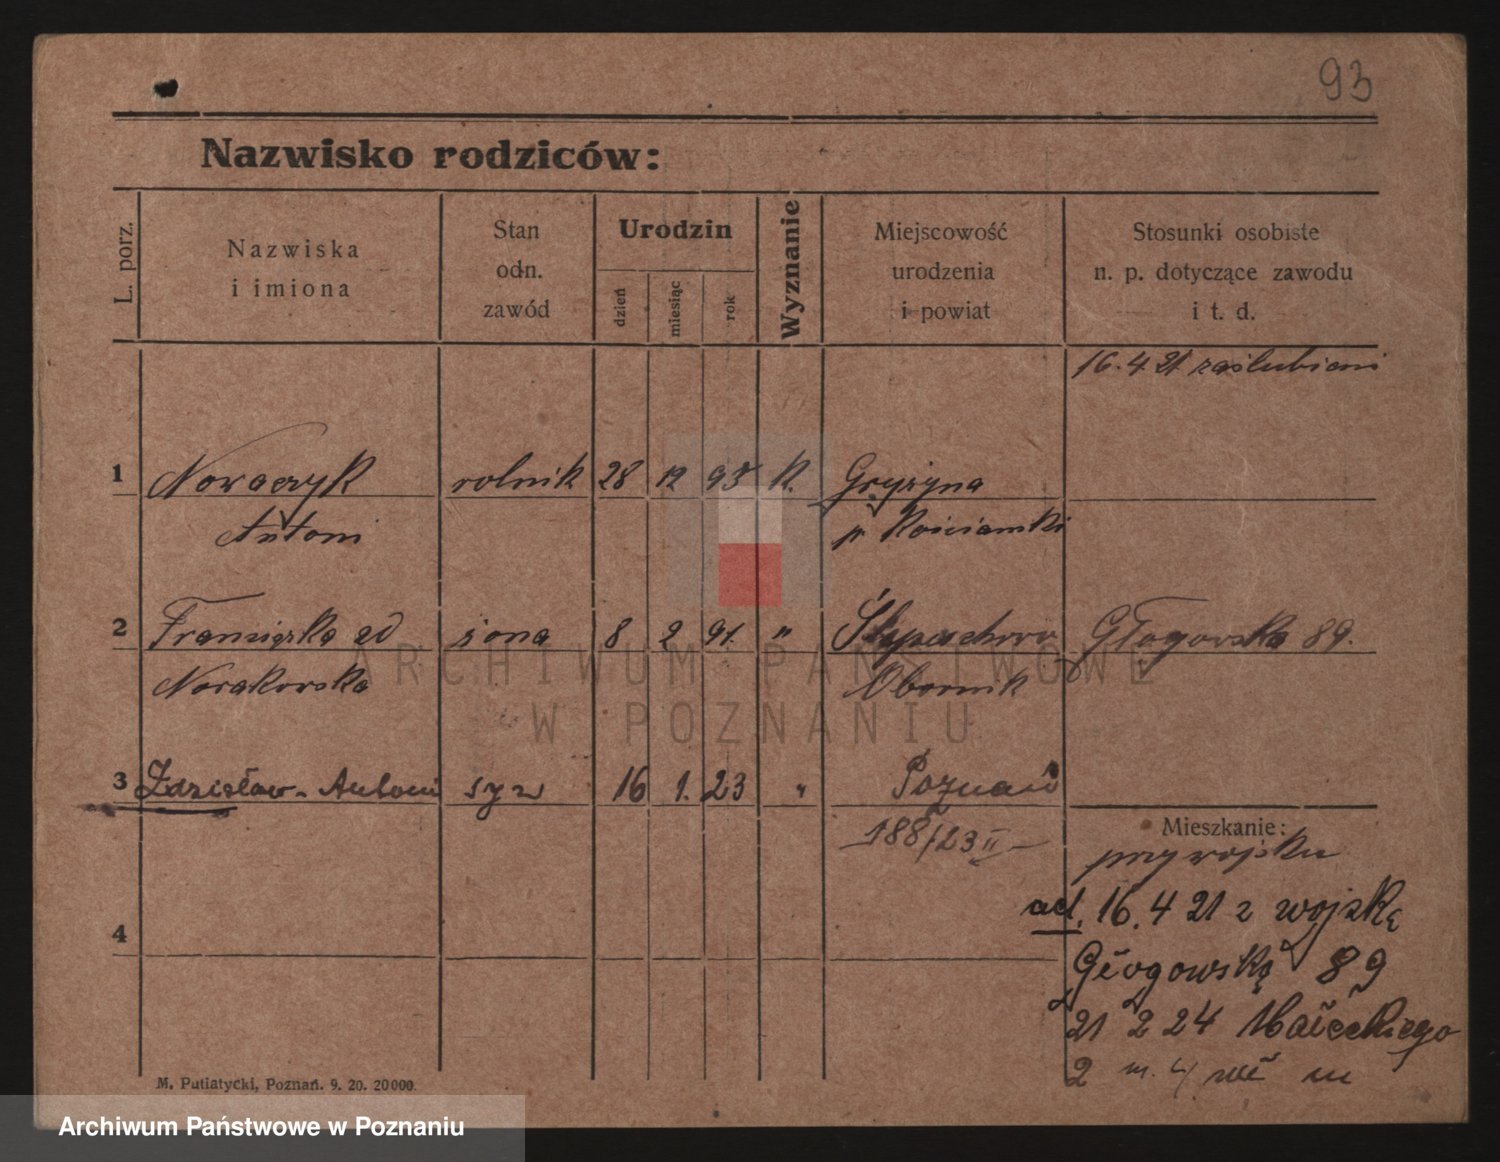 93
Nazwisko rodziców:
L. porz.
Nazwiska
i imiona
Stan
odn.
zawód
Urodzin
dzień
miesiąc
rok
Wyznanie
Miejscowość
urodzenia
i powiat
Stosunki osobiste
n. p. dotyczące zawodu
i t. d.
16.4 21 zaślubieni
1 Nowaczyk rolnik 28 12 95 k. Gryżyna
Antoni p Kościański
2 Franciszka żona 8 2 91. " Głogowska 89.
Nowakowska Obornik
3 Zdzisław-Antoni syn 16 1. 23 " Poznań
188/23 II
Mieszkanie:
przy wojsku
ad. 16.4 21 z wojska
4
Głogowska 89
21 2 24 Małeckiego
2 m. 4
M. Putiatycki, Poznań. 9. 20. 20000.
ARCHIWUM PAŃSTWOWE
W POZNANIU
Archiwum Państwowe w Poznaniu